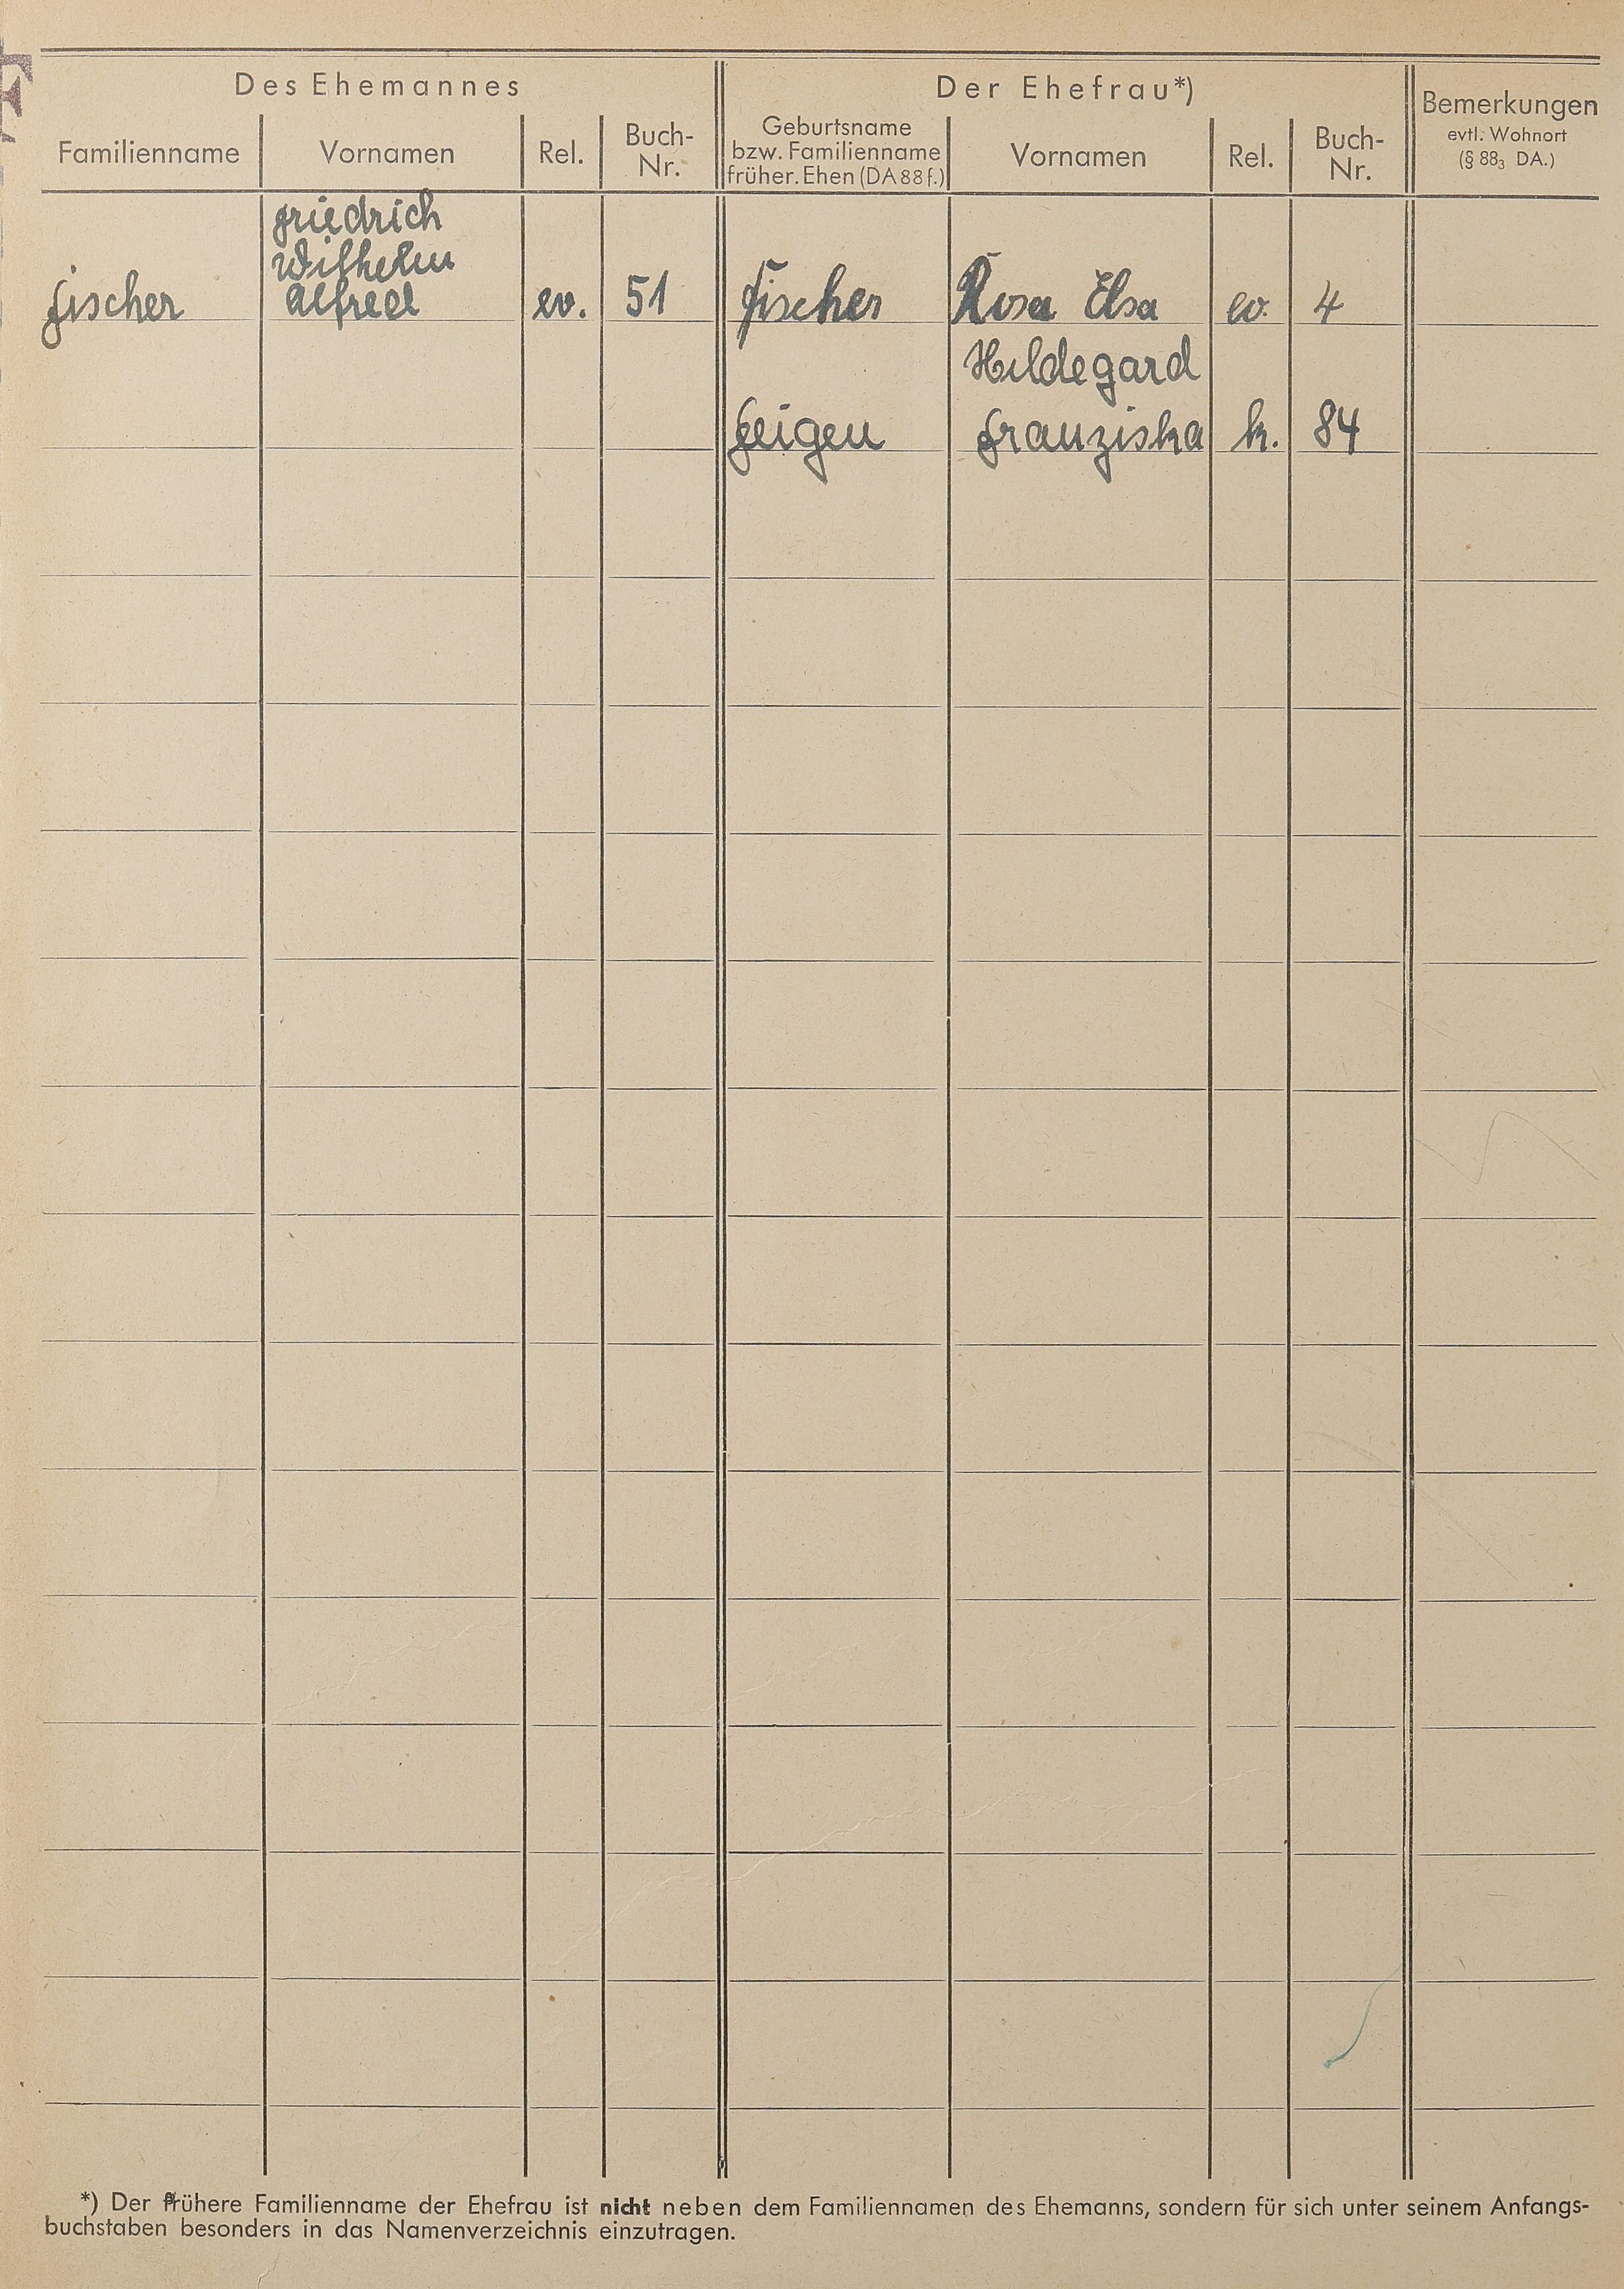 F
Des Ehemannes
Der Ehefrau*)
Bemerkungen
evtl. Wohnort
(§ 88₃ DA.)
Familienname
Vornamen
Rel.
Buch-
Nr.
Geburtsname
bzw. Familienname
früher. Ehen (DA 88 f.)
Vornamen
Rel.
Buch-
Nr.
Fischer
Friedrich
Wilhelm
Alfred
ev.
51
Fischer
Rosa Elsa
ev.
4
Hildegard
Franziska
k.
84
*) Der frühere Familienname der Ehefrau ist nicht neben dem Familiennamen des Ehemanns, sondern für sich unter seinem Anfangs-
buchstaben besonders in das Namenverzeichnis einzutragen.